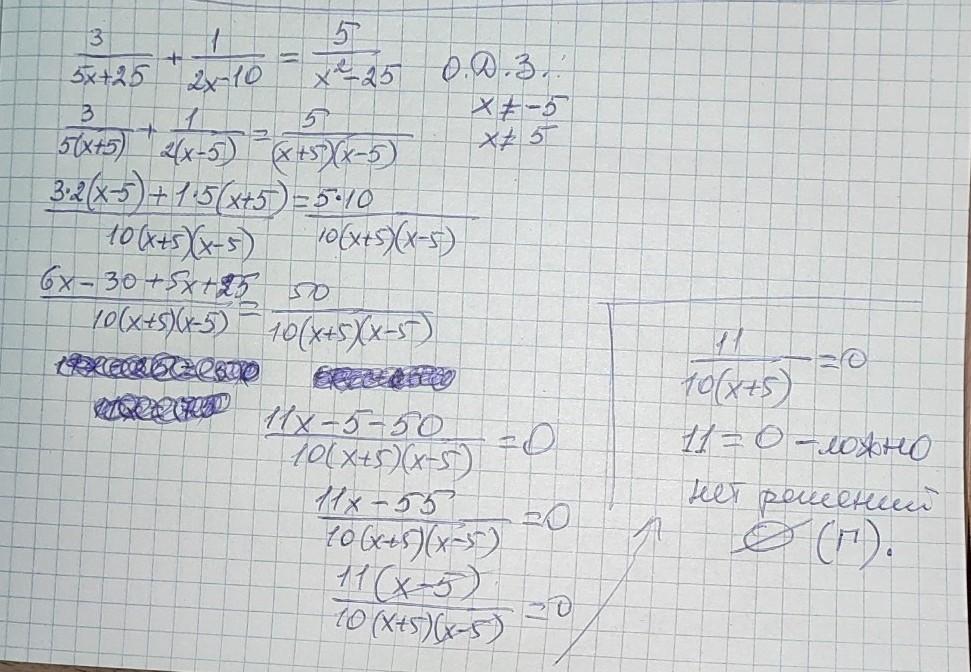 3/(5x+25) + 1/(2x-10) = 5/(x²-25) О.Д.З.:
x ≠ -5
x ≠ 5
3/(5(x+5)) + 1/(2(x-5)) = 5/((x+5)(x-5))
(3·2(x-5)+1·5(x+5))/(10(x+5)(x-5)) = (5·10)/(10(x+5)(x-5))
(6x-30+5x+25)/(10(x+5)(x-5)) = 50/(10(x+5)(x-5))
(11x-5-50)/(10(x+5)(x-5)) = 0
(11x-55)/(10(x+5)(x-5)) = 0
(11(x-5))/(10(x+5)(x-5)) = 0
11/(10(x+5)) = 0
11 = 0 - ложно
нет решений
∅ (П).